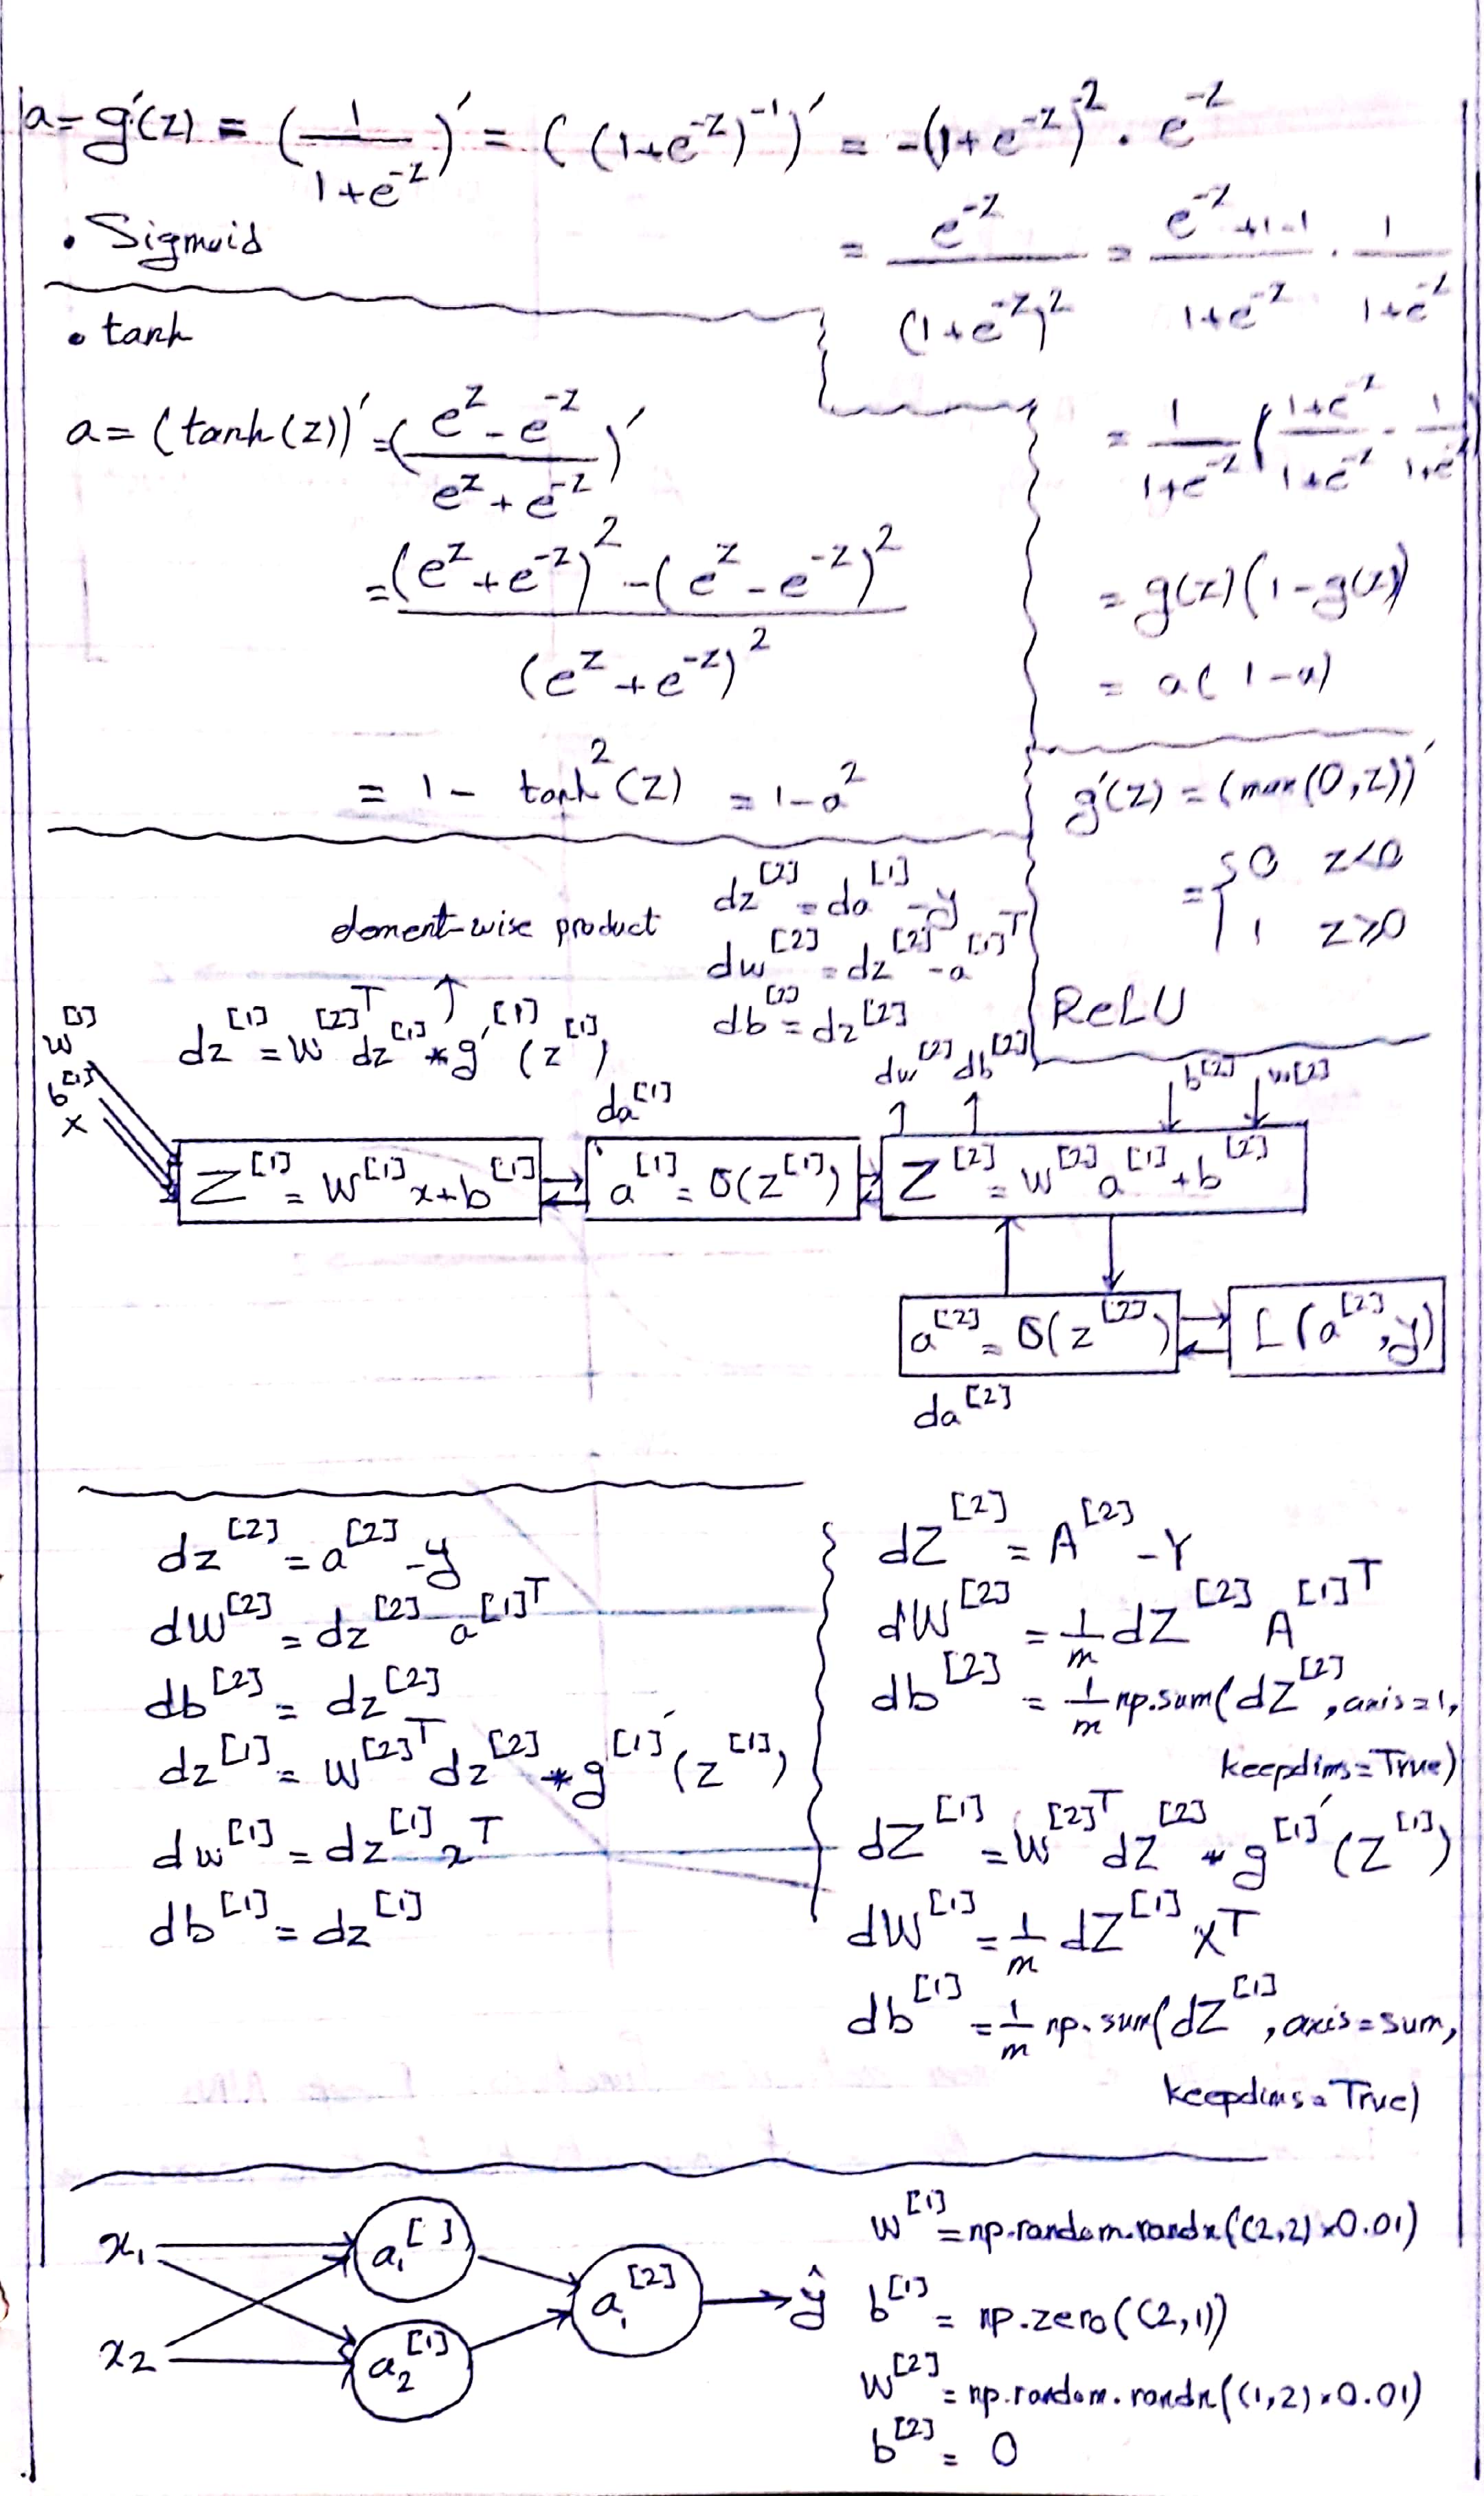 a = g'(z) = (1/(1+e^-z))' = ((1+e^-z)^-1)' = -(1+e^-z)^-2 · e^-z
• Sigmoid
= e^-z/(1+e^-z)^2 = (e^-z +1-1)/(1+e^-z) · 1/(1+e^-z)
= 1/(1+e^-z) ((1+e^-z)/(1+e^-z) - 1/(1+e^-z))
= g(z)(1-g(z))
= a(1-a)
• tanh
a = (tanh(z))' = ((e^z - e^-z)/(e^z + e^-z))'
= ((e^z + e^-z)^2 - (e^z - e^-z)^2)/(e^z + e^-z)^2
= 1 - tanh^2(z) = 1-a^2
g'(z) = (max(0,z))'
= { 0 z<0
1 z≥0
ReLU
element-wise product
dz^[2] = da^[1] - y
dw^[2] = dz^[2] - a^[1]T
db^[2] = dz^[2]
dz^[1] = W^[2]T dz^[1] * g'^[1] (z^[1])
w^[1]
b^[1]
x
da^[1]
dw^[2] db^[2]
b^[2] w^[2]
Z^[1] = W^[1] x+b^[1]
a^[1] = σ(z^[1])
Z^[2] = W^[2] a^[1] + b^[2]
a^[2] = σ(z^[2])
L(a^[2], y)
da^[2]
dz^[2] = a^[2] - y
dW^[2] = dz^[2] a^[1]T
db^[2] = dz^[2]
dz^[1] = W^[2]T dz^[2] * g^[1]' (z^[1])
dw^[1] = dz^[1] x^T
db^[1] = dz^[1]
dZ^[2] = A^[2] - Y
dW^[2] = 1/m dZ^[2] A^[1]T
db^[2] = 1/m np.sum(dZ^[2], axis=1,
keepdims=True)
dZ^[1] = W^[2]T dZ^[2] * g^[1]' (Z^[1])
dW^[1] = 1/m dZ^[1] X^T
db^[1] = 1/m np.sum(dZ^[1], axis=sum,
keepdims=True)
x1
x2
a1^[ ]
a2^[1]
a1^[2]
ŷ
W^[1] = np.random.randn((2,2)×0.01)
b^[1] = np.zero((2,1))
W^[2] = np.random.randn((1,2)×0.01)
b^[2] = 0